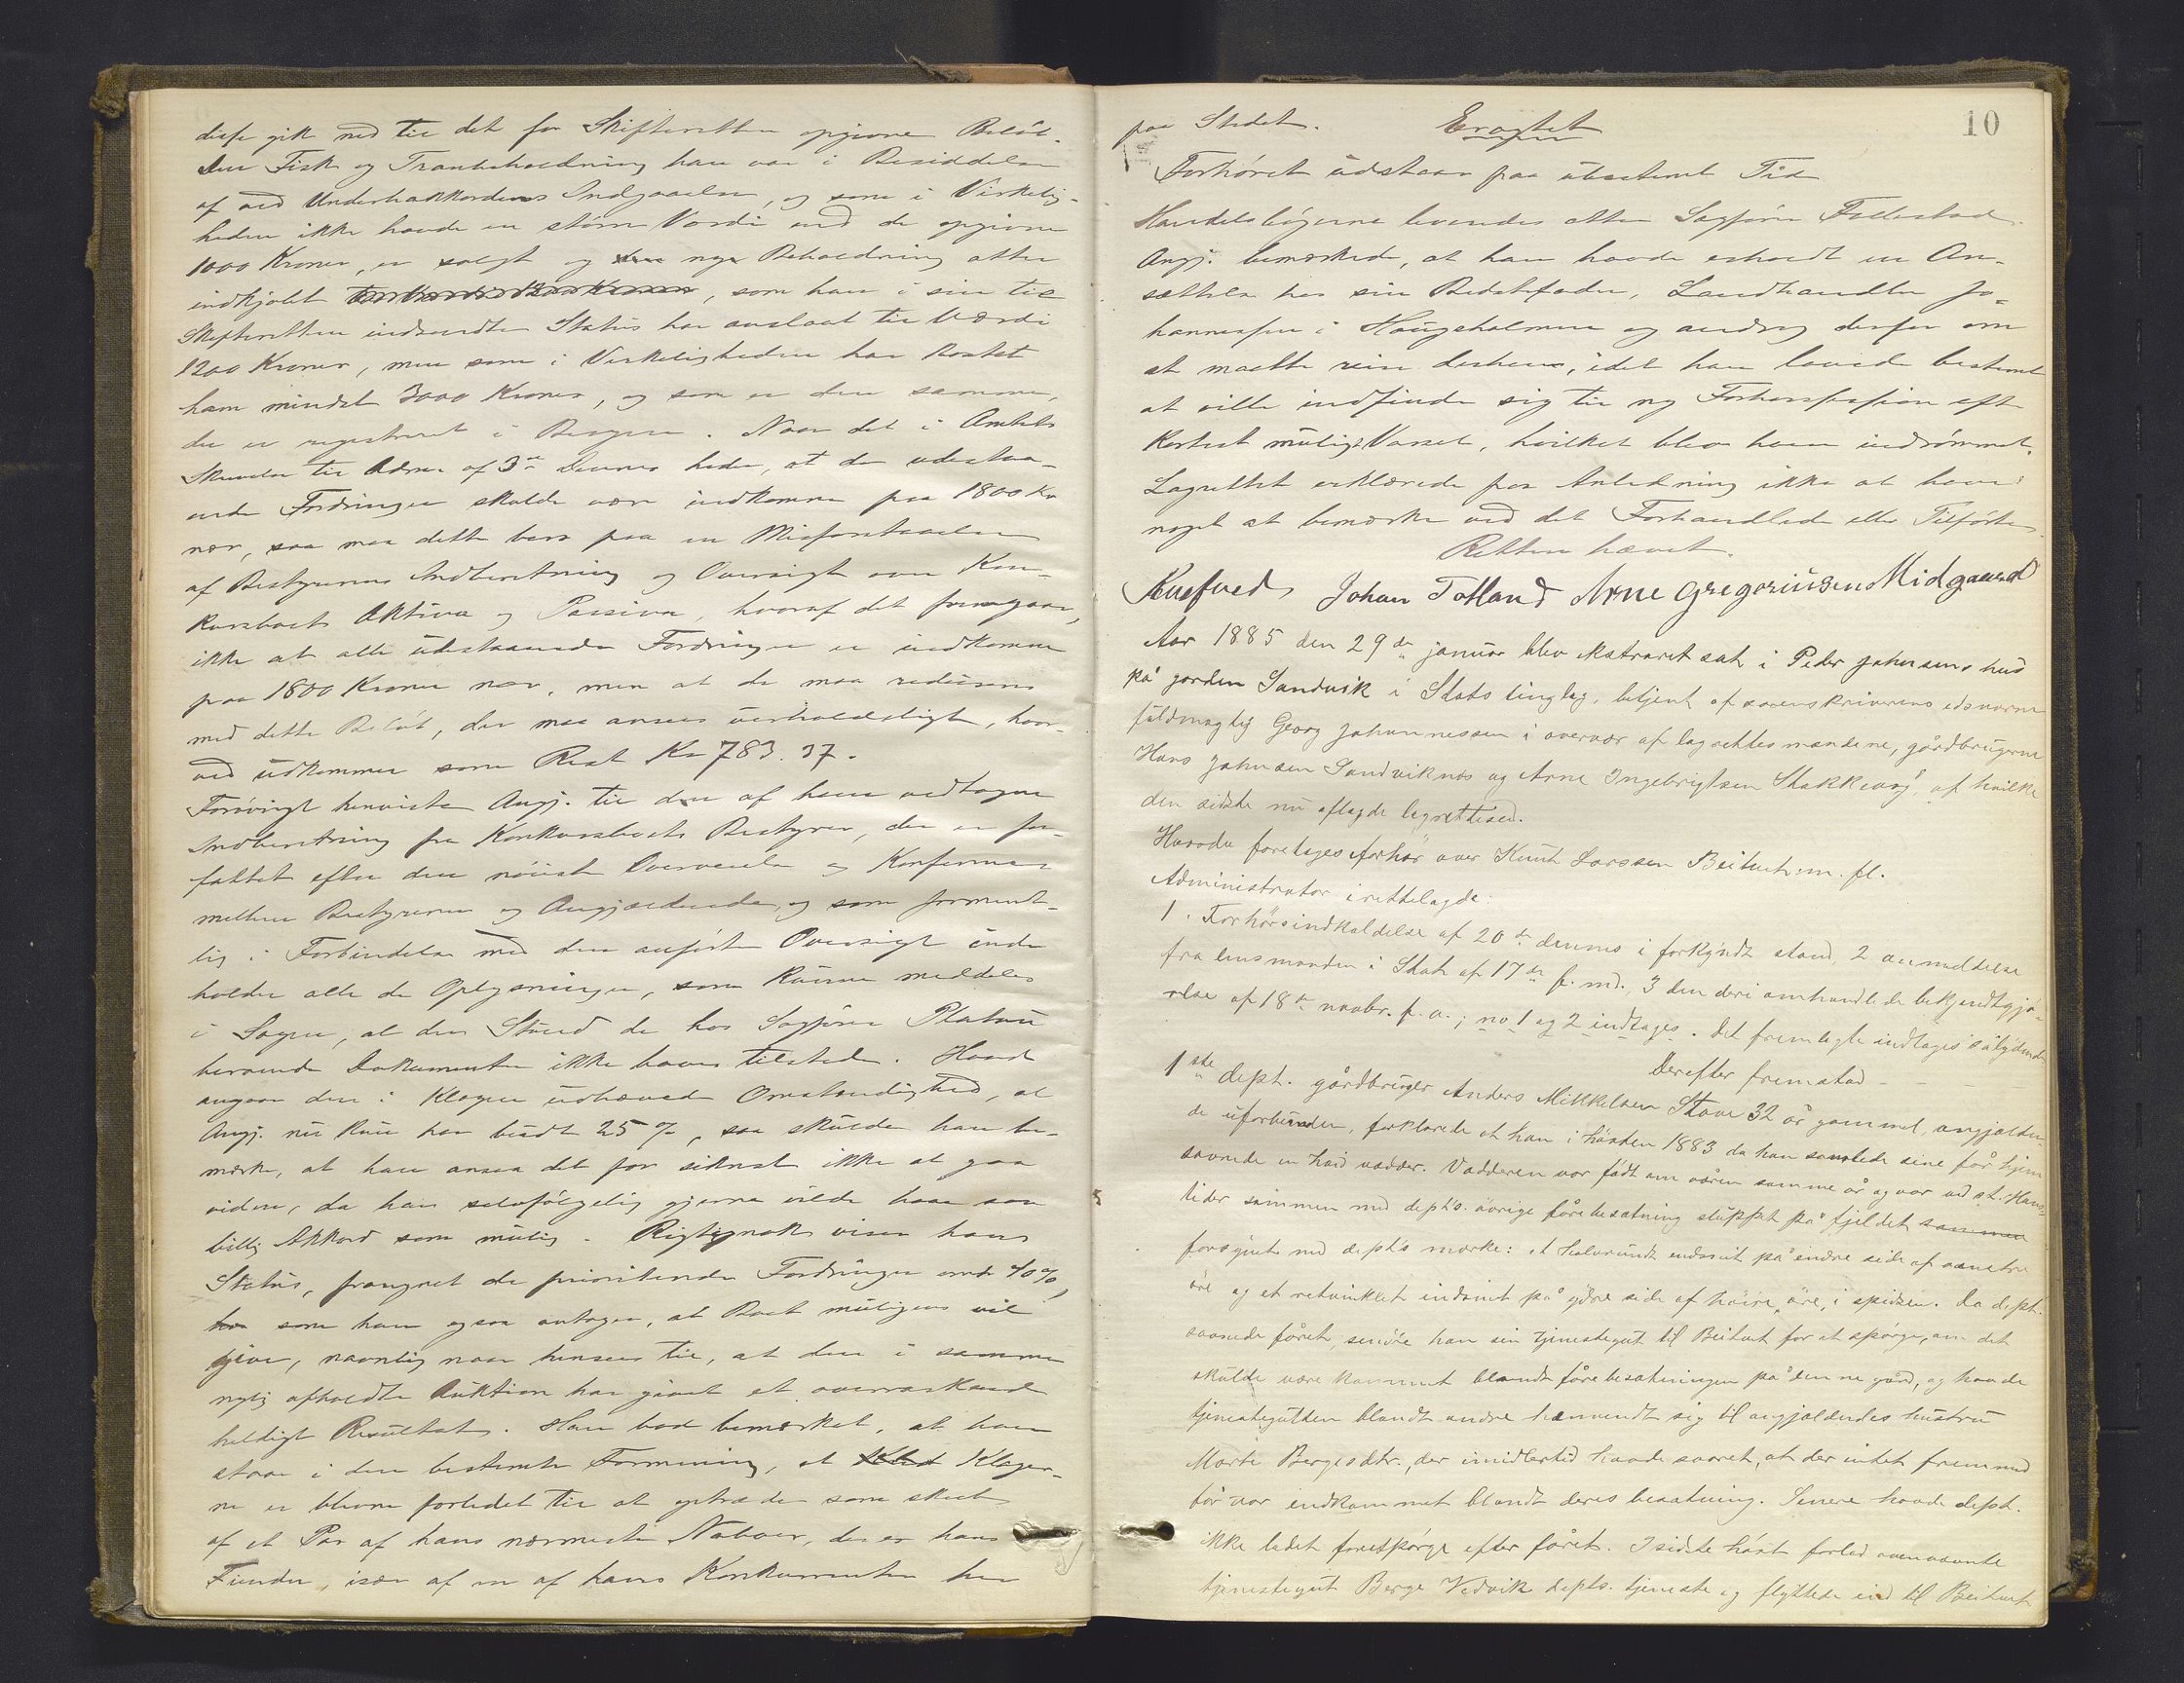 disse gik ned til det for Skifteretten opgivne Beløb.
Den Fisk og Tranbeholdning han var i Besiddelse
af ved Underhaakkordens Indgaaelse, og som i Virkelig-
heden ikke havde en større Værdi end de opgivne
1000 Kroner, er solgt og nye Beholdning atter
indkjøbt, som han i sin til
Skifteretten indsendte Status har anslaat til Værdi
1200 Kroner, men som i Virkeligheden har kostet
ham mindst 3000 Kroner, og som er den samme,
der er registreret i Bergen. Naar det i Amtets
Skrivelse til Adm. af 3die dennes heder, at de udestaa-
ende Fordringer skulde være indkomne paa 1800 Kr
nær, saa maa dette bero paa en Misforstaaelse
af Bestyrerens Indberetning og Oversigt over Kon-
kursboets Aktiva og Passiva, hvoraf det fremgaar,
ikke at alle udestaaende Fordringer er indkomne
paa 1800 Kroner nær, men at de maa reduceres
med dette Beløb, der maa ansees uerholdeligt, hvor-
ved udkommer som Rest Kr 783.37.
Forøvrigt henviste Angj. til den af ham vedtagne
Indberetning fra Konkursboets Bestyrer, der er for-
fattet efter den nøieste Overveielse og Konference
mellem Bestyreren og Angjældende, og som forment-
lig i Forbindelse med den anførte Oversigt inde-
holder alle de Oplysninger, som kunne meddeles
i Sagen, al den Stund de hos Sagfører Platou
beroende Dokumenter ikke haves tilstede. Hvad
angaar den i Klagen udhævede Omstændighed, at
Angj. nu kun har budt 25 %, saa skulde han be-
mærke, at han ansaa det for sikrest ikke at gaa
videre, da han selvfølgelig gjerne vilde have saa
billig Akkord som mulig. Rigtignok viser hans
Status, fraregnet de prioriterede Fordringer omtr 40 %,
som han ogsaa antager, at Boet muligens vil
give, navnlig naar hensees til, at den i
nylig afholdte Auktion har givet et overraskende
heldigt Resultat. Han bad bemærket, at han
staar i den bestemte Formening, at Klager-
ne er blevne forledet til at optræde som skeet
af et Par af hans nærmeste Naboer, der er hans
Fiender, især af en af hans Konkurrenter her
10
paa Stedet. Eragtet
Forhøret udstaar paa ubestemt Tid
Handelsbøgerne leveredes atter Sagfører Follestad.
Angj. bemærkede, at han havde erholdt en An-
sættelse hos sin Bedstefader, Landhandler Jo-
hannessen i Haugsholmen og androg derfor om
at maatte reise derhen, idet han lovede bestemt
at ville indfinde sig til ny Forhørssession efter
kortest muligt Varsel, hvilket blev ham indrømmet.
Lagrettet erklærede paa Anledning ikke at have
noget at bemærke ved det Forhandlede eller Tilførte.
Retten hævet.
Johan Totland Arne Gregoriusen Midgaard
Aar 1885 den 29de januar blev ekstraret sat i Peder Johnsens hus
på gården Sandvik i Stats tinglag, betjent af sorenskriverens edsvorne
fuldmægtig Georg Johannessen i overvær af lagrettesmændene, gårdbrugerne
Hans Johnsen Sandviknes og Arne Ingebrigtsen Stokkevåg, af hvilke
den sidste nu aflagde lagrettesed.
Hvorda foretages forhør over Knut Larssen Beitveit m. fl.
Administrator irettelagde:
1. Forhørsindkaldelse af 20de dennes i forkyndt stand, 2 anmeldelse
fra lensmanden i Stat af 17de f. md., 3 den deri omhandlede bekjendtgjø-
relse af 18de novbr. f. a.; no 1 og 2 indtages. Det fremlagte indtages sålydende
Derefter fremstod
1ste dept. gårdbruger Anders Mikkelsen Stave 32 år gammel, angjælden-
de uforbunden, forklarede at han i høsten 1883 da han samlede sine får hjem
savnede en hvid vædder. Vædderen var født om våren samme år og var ved st. Hans
tider sammen med dept's. øvrige fårebesætning sluppet på fjeldet sammen
forsynet med dept's mærke: et halvrundt indsnit på indre side af venstre
øre og et retvinklet indsnit på ydre side af høire øre, i spidsen. Da dept.
savnede fåret, sendte han sin tjenestegut til Beitveit for at spørge, om det
skulde være kommet blandt fårebesætningen på denne gård, og havde
tjenestegutten blandt andre henvendt sig til angjældendes hustru
Marte Bergesdtr., der imidlertid havde svaret, at der intet fremmed
får var indkommet blandt deres besætning. Senere havde dept.
ikke ladet forespørge efter fåret. I sidste høst forlod ovennævnte
tjenestegut Berge Vedvik depts. tjeneste og flyttede ind til Beitveit